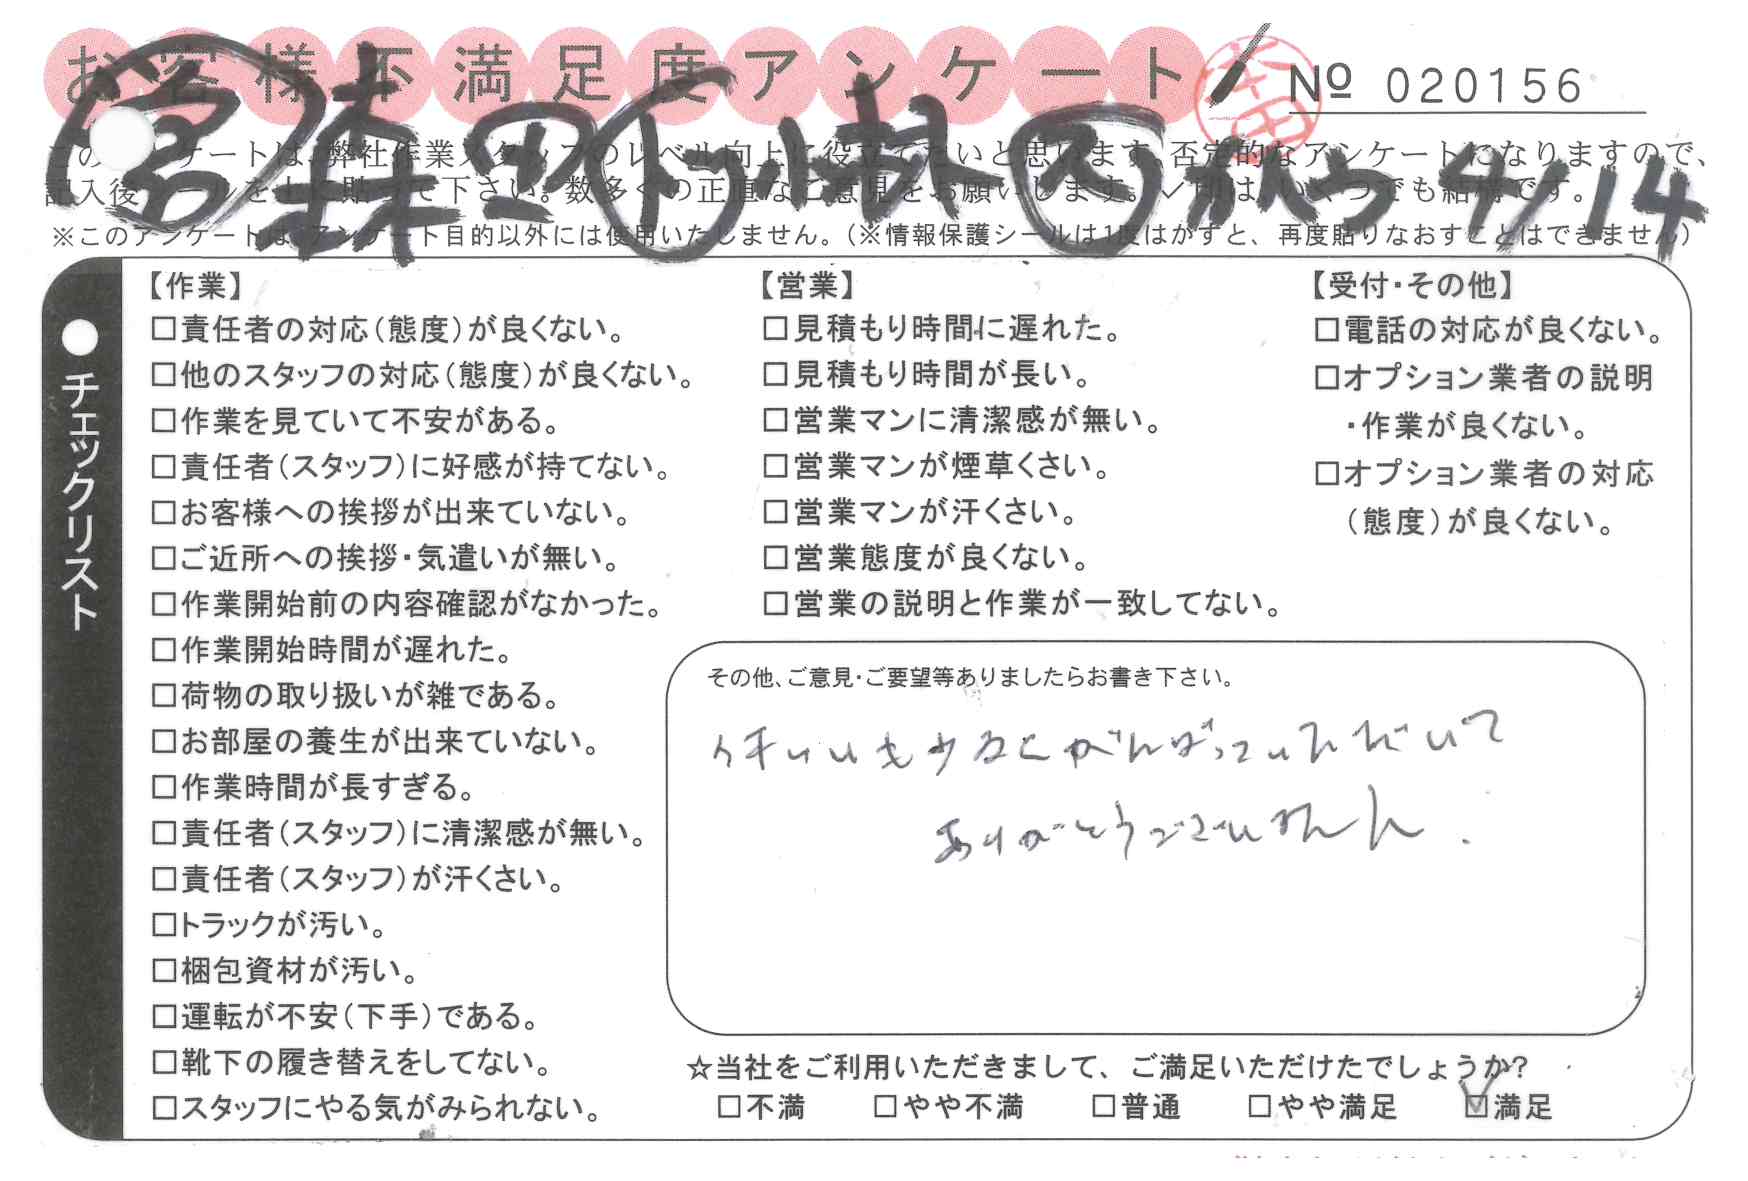 お客様不満足度アンケート
№ 020156
営 森田 ト 小林 ス 秋 4/14
このアンケートは、弊社作業スタッフのレベル向上に役立てたいと思います。否定的なアンケートになりますので、
記入後シールを上に貼って下さい。数多くの正直なご意見をお願いします。✓印は、いくつでも結構です。
※このアンケートは、アンケート目的以外には使用いたしません。(※情報保護シールは1度はがすと、再度貼りなおすことはできません)
●チェックリスト
【作業】
□責任者の対応(態度)が良くない。
□他のスタッフの対応(態度)が良くない。
□作業を見ていて不安がある。
□責任者(スタッフ)に好感が持てない。
□お客様への挨拶が出来ていない。
□ご近所への挨拶・気遣いが無い。
□作業開始前の内容確認がなかった。
□作業開始時間が遅れた。
□荷物の取り扱いが雑である。
□お部屋の養生が出来ていない。
□作業時間が長すぎる。
□責任者(スタッフ)に清潔感が無い。
□責任者(スタッフ)が汗くさい。
□トラックが汚い。
□梱包資材が汚い。
□運転が不安(下手)である。
□靴下の履き替えをしてない。
□スタッフにやる気がみられない。
【営業】
□見積もり時間に遅れた。
□見積もり時間が長い。
□営業マンに清潔感が無い。
□営業マンが煙草くさい。
□営業マンが汗くさい。
□営業態度が良くない。
□営業の説明と作業が一致してない。
【受付・その他】
□電話の対応が良くない。
□オプション業者の説明
・作業が良くない。
□オプション業者の対応
(態度)が良くない。
その他、ご意見・ご要望等ありましたらお書き下さい。
がんばっていただいて
ありがとうございました.
☆当社をご利用いただきまして、ご満足いただけたでしょうか?
□不満 □やや不満 □普通 □やや満足 ☑満足